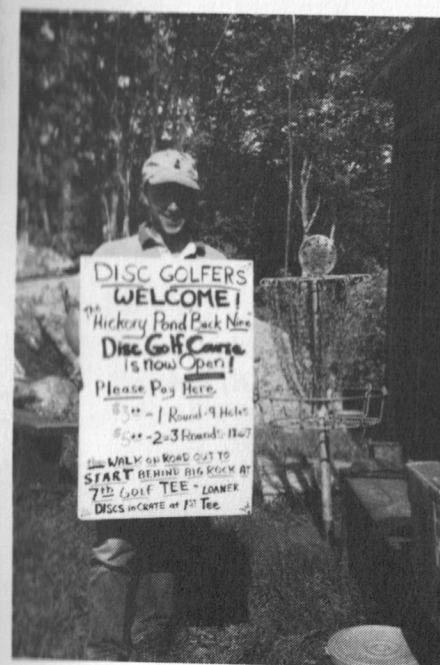 DISC GOLFERS
WELCOME!
The
"Hickory Pond Back Nine"
Disc Golf Course
is now Open!
Please Pay Here
$3⁰⁰ - 1 Round - 9 Holes
$5⁰⁰ - 2 or 3 Rounds - 18 or 27
WALK ON ROAD OUT TO
START BEHIND BIG ROCK AT
7th GOLF TEE - LOANER
DISCS in CRATE at 1ST Tee